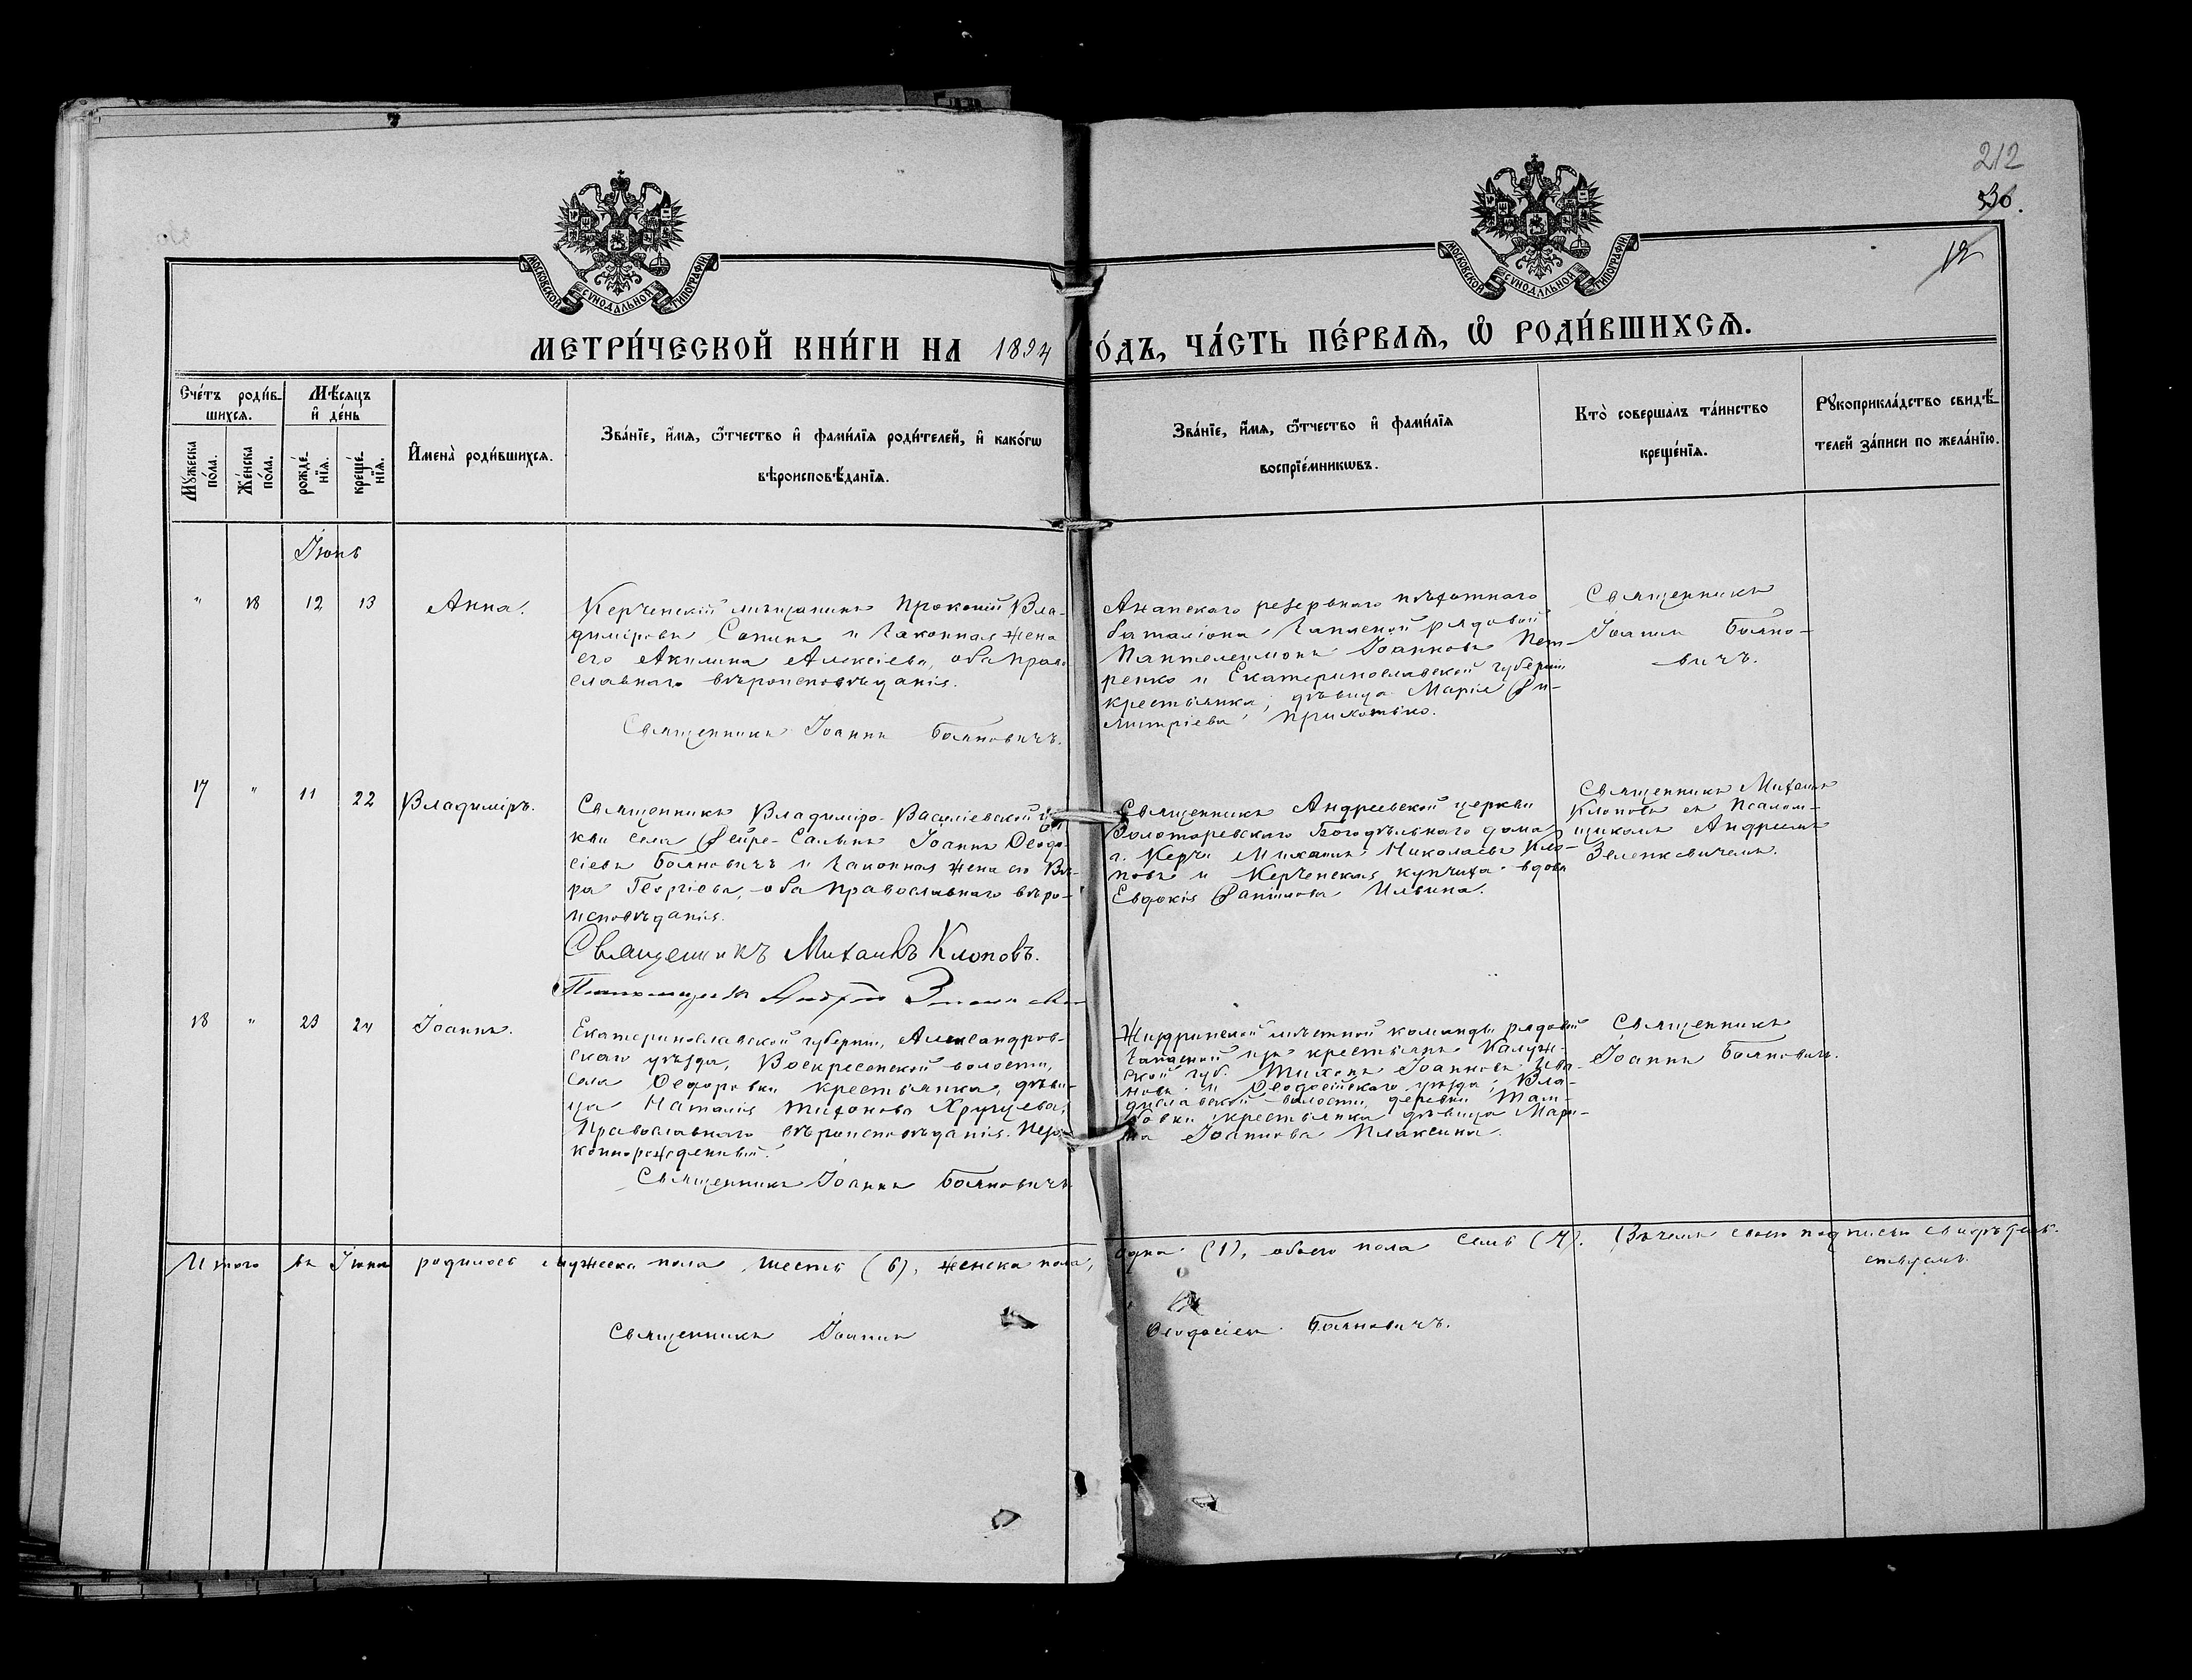 212
36.
12
МОСКОВСКОЙ СУНОДАЛЬНОЙ ТИПОГРАФІИ
МОСКОВСКОЙ СУНОДАЛЬНОЙ ТИПОГРАФІИ
МЕТРИ́ЧЕСКОЙ КНИ́ГИ НА 1894 ГО́ДЪ, ЧА́СТЬ ПЕ́РВАЯ, Ѽ РОДИ́ВШИХСЯ.
Сче́тъ роди́в-
шихся.
Мѣ́сяцъ
и҆ де́нь
Му́жеска по́ла.
Же́нска по́ла.
рожде́-
нїя.
креще́-
нїя.
И҆мена̀ роди́вшихся.
Зва́нїе, и҆́мя, ѻ҆́тчество и҆ фами́лїя роди́телей, и҆ како́гѡ
вѣроисповѣ́данїя.
Зва́нїе, и҆́мя, ѻ҆́тчество и҆ фами́лїя
воспрїе́мникѡвъ.
Кто̀ соверша́лъ та́инство
креще́нїя.
Рꙋкоприкла́дство свидѣ́-
телей за́писи по жела́нїю.
Іюнь
" 18 12 13 Анна.
Керченскій мѣщанинъ Прокопій Вла-
диміровъ Сапинъ и законная жена
его Акилина Алексіева, оба право
славнаго вѣроисповѣданія.
Священникъ Іоаннъ Бояновичъ.
Анапскаго резервнаго пѣхотнаго
баталіона запасной рядовой
Пантелеимонъ Іоанновъ Пет-
ренко и Екатеринославской губерніи
крестьянка, дѣвица Марія Ди-
митріева Прихотько.
Священникъ
Іоаннъ Бояно-
вичъ.
17 " 11 22 Владиміръ.
Священникъ Владиміро-Василіевской цер
кви села Джайре-Сальнъ Іоаннъ Ѳеодо-
сіевъ Бояновичъ и законная жена его Вѣ-
ра Георгіева, оба православнаго вѣро-
исповѣданія.
Священникъ Михаилъ Клоповъ.
Псаломщикъ Андрей
Священникъ Андреевской церкви
Золотаревскаго Богодѣльнаго дома
г. Керчи Михаилъ Николаевъ Кло-
повъ и Керченская купчиха вдова
Евдокія Даніилова Ильина.
Священникъ Михаилъ
Клоповъ съ Псалом-
щикомъ Андреемъ
Зеленкевичемъ.
18 " 23 24 Іоаннъ.
Екатеринославской губерніи, Александров-
скаго уѣзда, Воскресенской волости,
села Ѳедоровки крестьянка, дѣви-
ца Наталія Тихонова Хрущева,
Православнаго вѣроисповѣданія. Неза-
коннорожденный.
Священникъ Іоаннъ Бояновичъ
Жиздринской мѣстной команды рядовой
запасной изъ крестьянъ Калуж-
ской губ. Тихонъ Іоанновъ Ива-
новъ и Ѳеодосійскаго уѣзда, Вла-
диславской волости, деревни Там-
бовки крестьянка дѣвица Мари-
на Іоаннова Плаксина.
Священникъ
Іоаннъ Бояновичъ.
Итого въ Іюнѣ родилось мужеска пола шесть (6), женска пола, одна (1), обоего пола семь (7). Въ чемъ своею подписью свидѣтель-
ствуемъ.
Священникъ Іоаннъ Ѳеодосіевъ Бояновичъ.